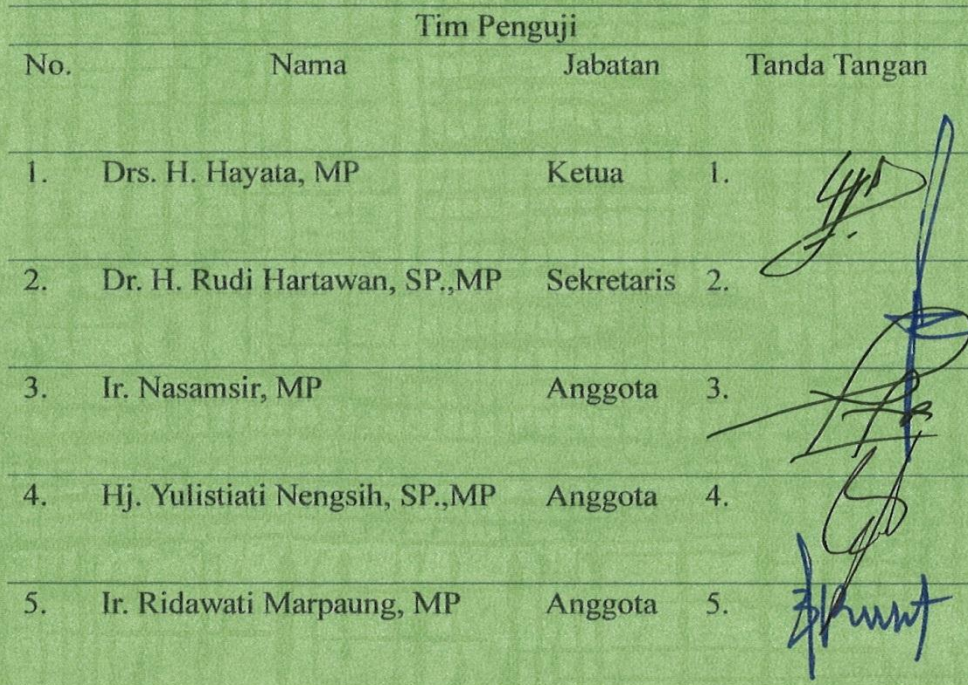 Tim Penguji
No. Nama Jabatan Tanda Tangan
1. Drs. H. Hayata, MP Ketua 1.
2. Dr. H. Rudi Hartawan, SP.,MP Sekretaris 2.
3. Ir. Nasamsir, MP Anggota 3.
4. Hj. Yulistiati Nengsih, SP.,MP Anggota 4.
5. Ir. Ridawati Marpaung, MP Anggota 5.